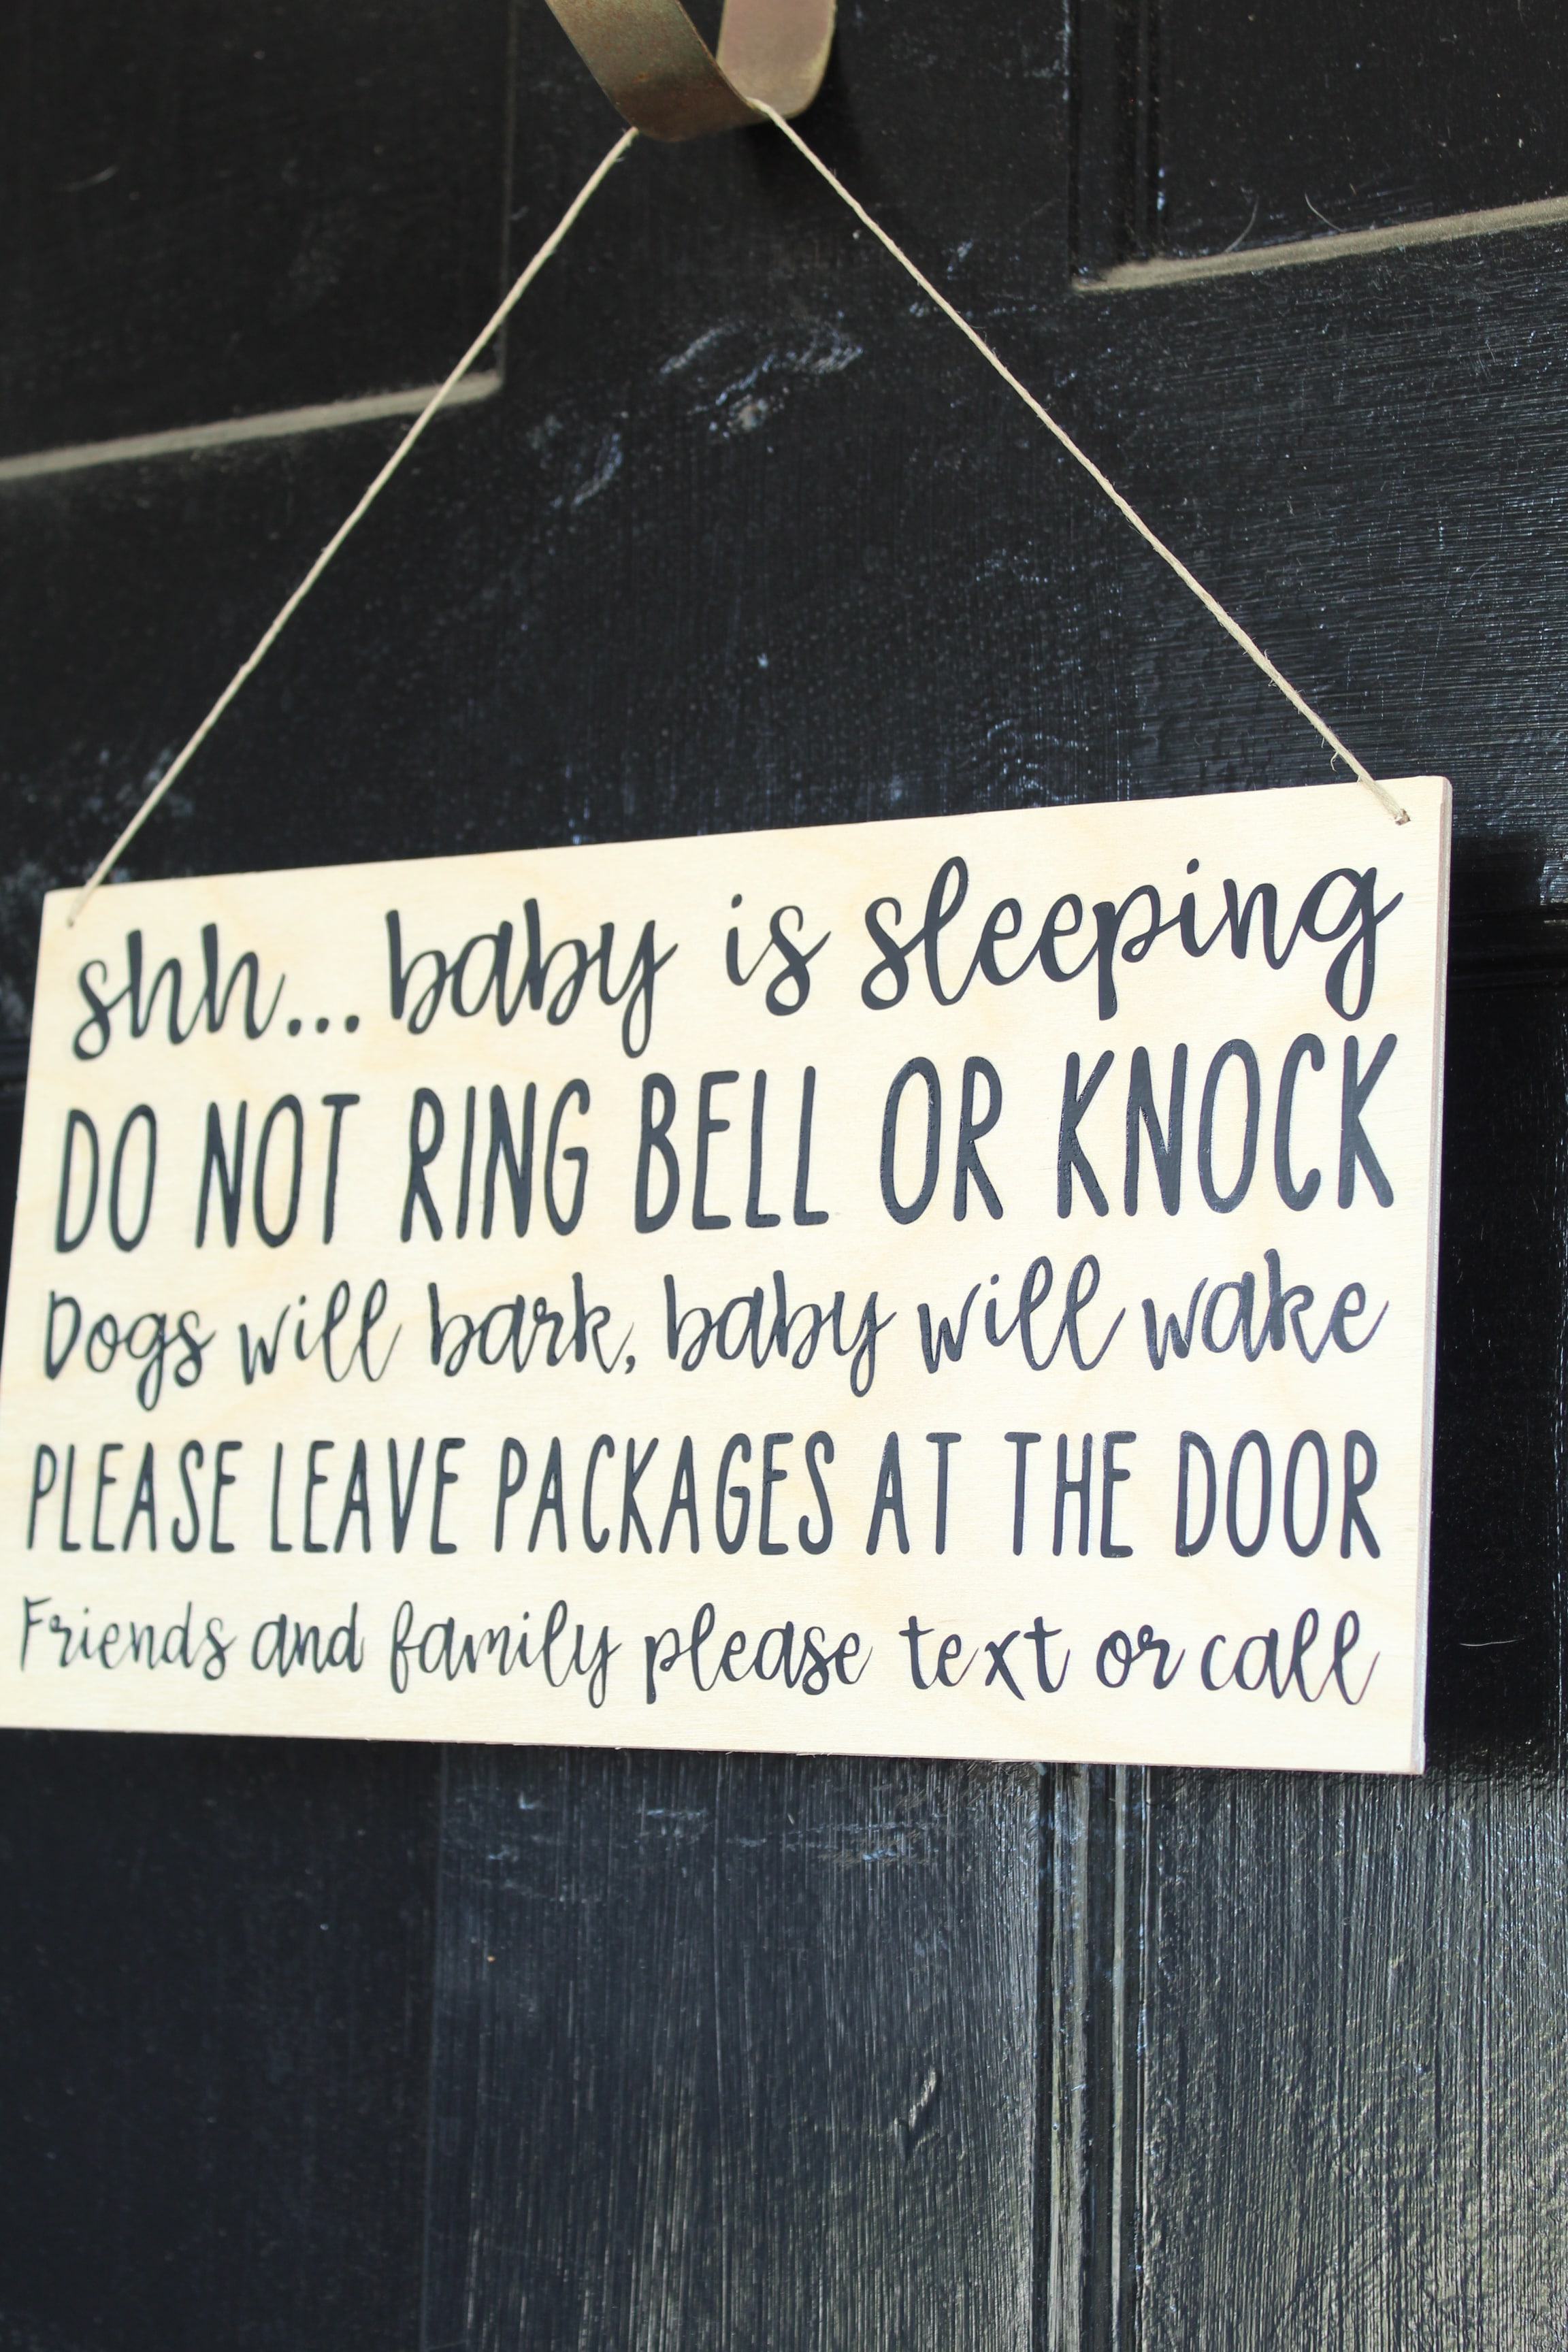 shh... baby is sleeping
DO NOT RING BELL OR KNOCK
Dogs will bark, baby will wake
PLEASE LEAVE PACKAGES AT THE DOOR
Friends and family please text or call